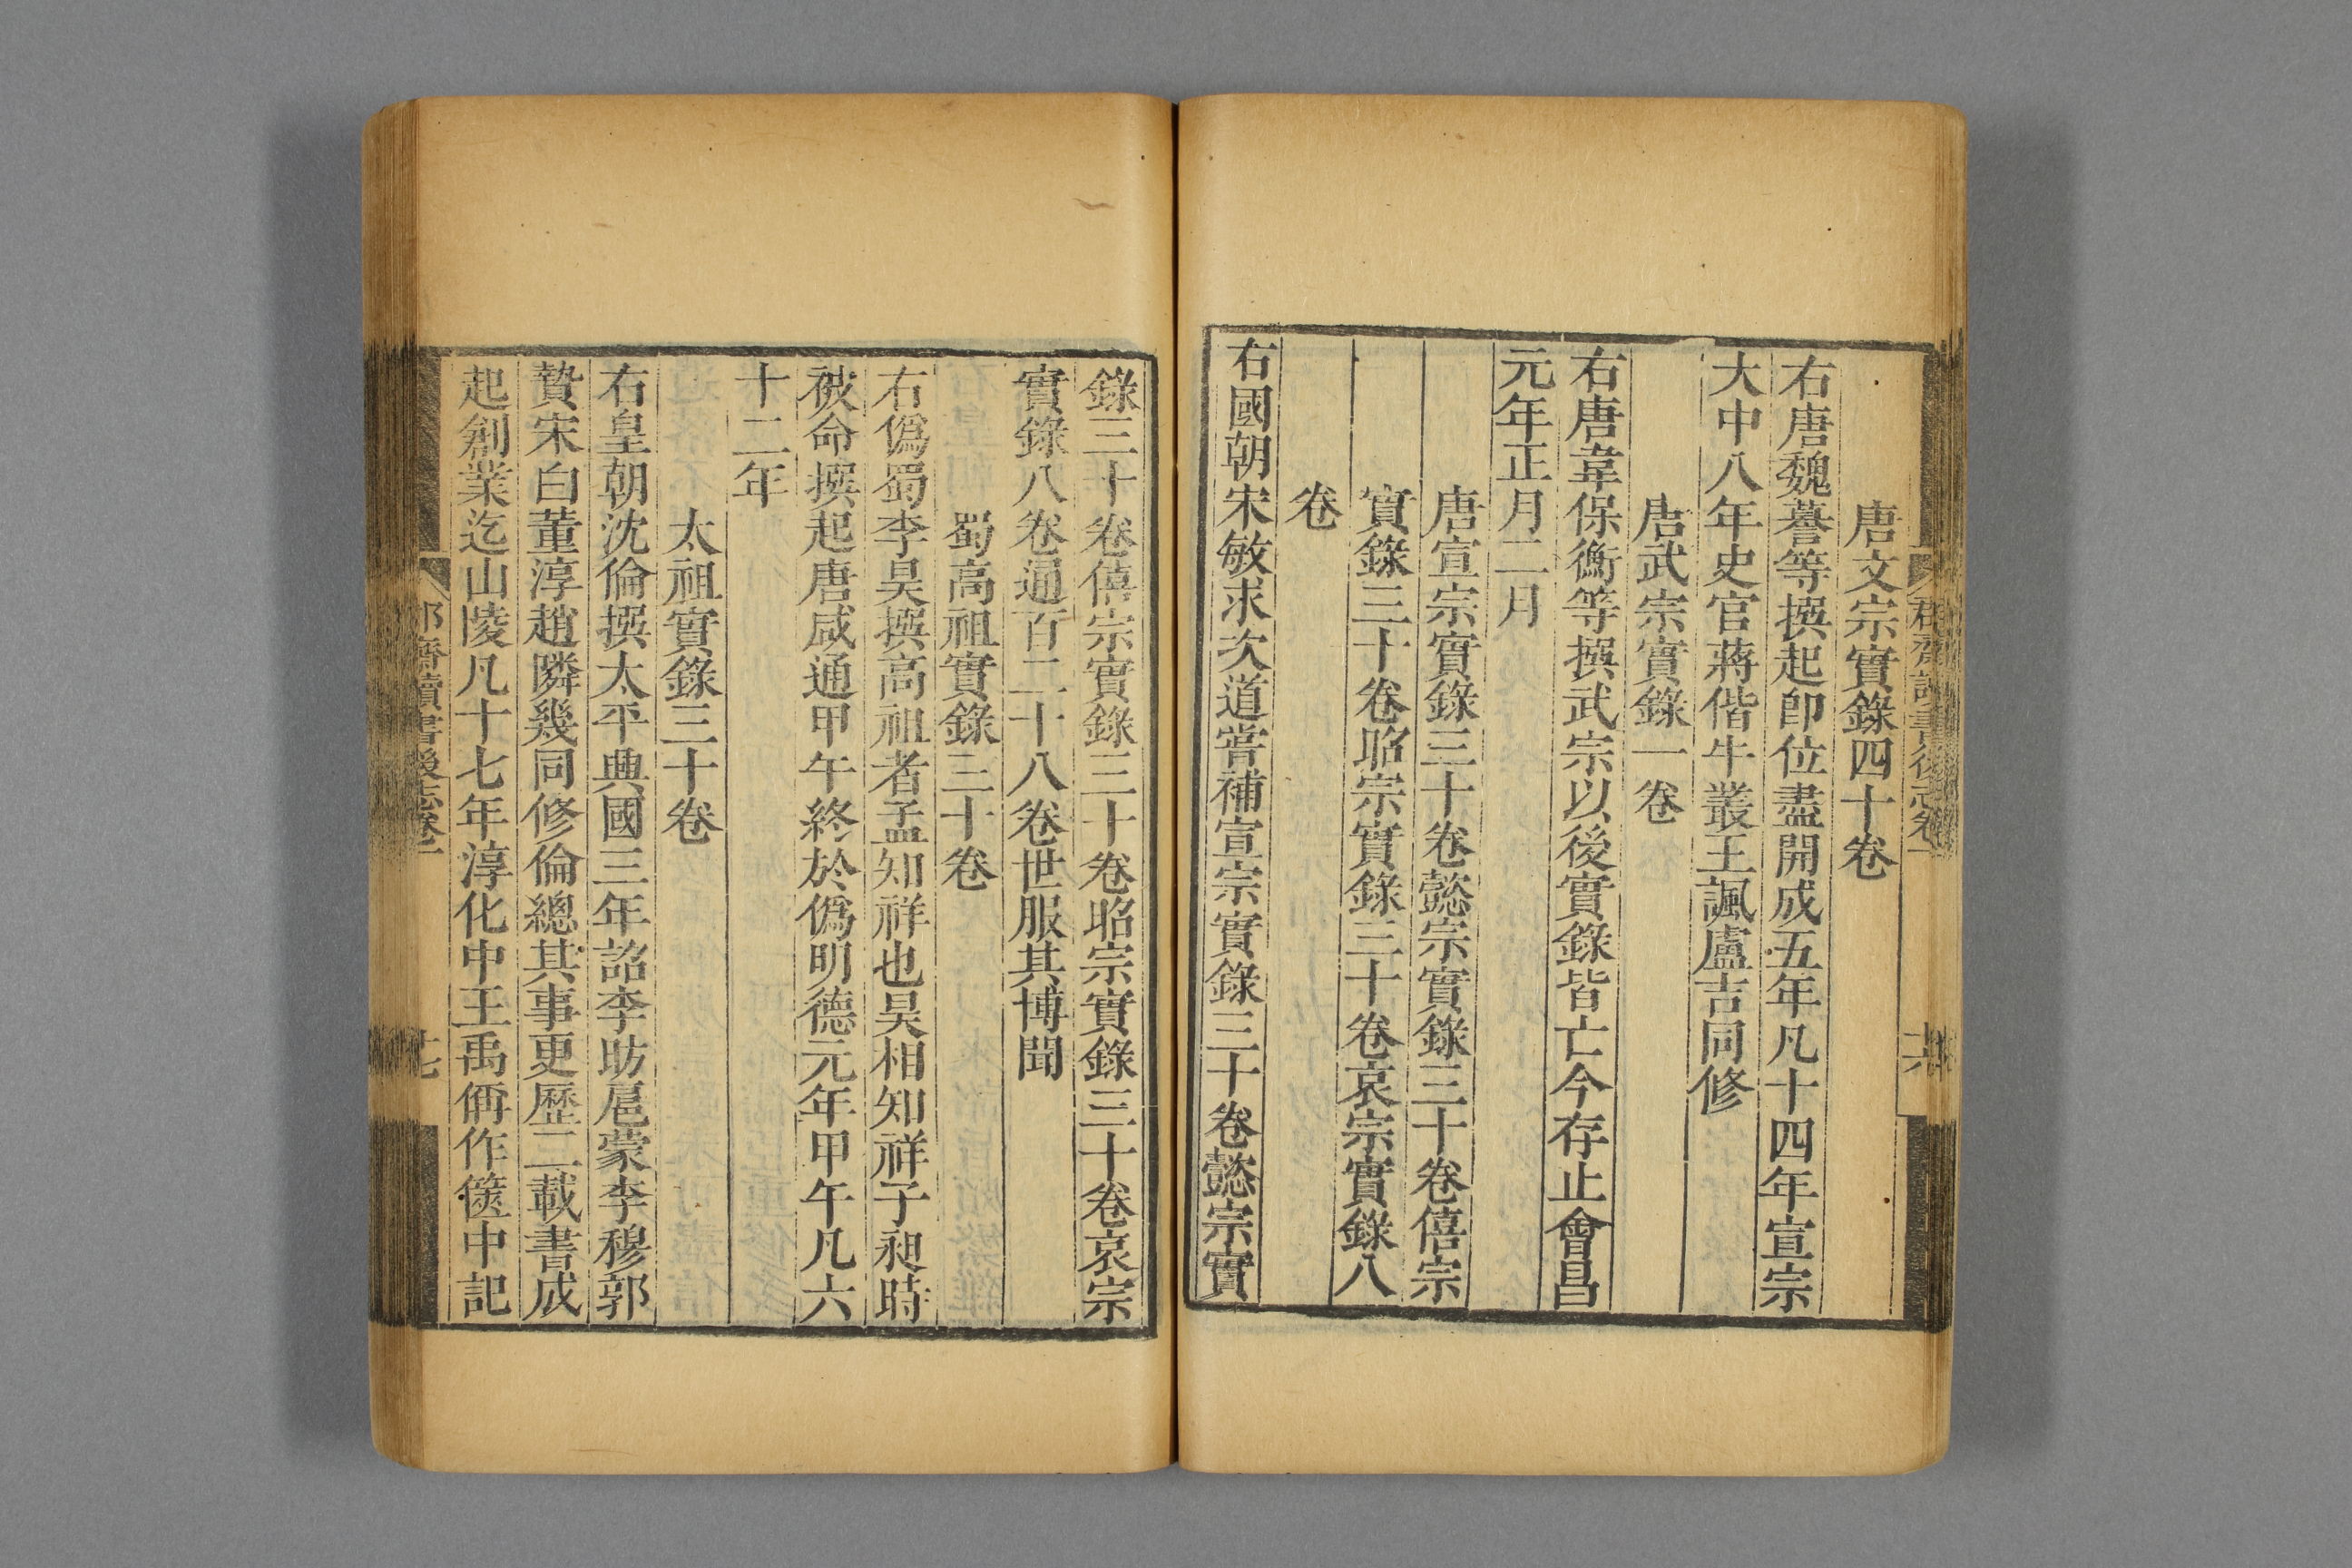 唐文宗實錄四十卷
右唐魏謩等撰起卽位盡開成五年凡十四年宣宗
大中八年史官蔣偕牛叢王諷盧吉同修
唐武宗實錄一卷
右唐韋保衡等撰武宗以後實錄皆亡今存止會昌
元年正月二月
唐宣宗實錄三十卷懿宗實錄三十卷僖宗
實錄三十卷昭宗實錄三十卷哀宗實錄八
卷
右國朝宋敏求次道嘗補宣宗實錄三十卷懿宗實
錄三十卷僖宗實錄三十卷昭宗實錄三十卷哀宗
實錄八卷通百二十八卷世服其博聞
蜀高祖實錄三十卷
右僞蜀李昊撰高祖者孟知祥也昊相知祥子昶時
被命撰起唐咸通甲午終於僞明德元年甲午凡六
十二年
太祖實錄三十卷
右皇朝沈倫撰太平典國三年詔李昉扈蒙李穆郭
贄宋白董淳趙隣幾同修倫總其事更歷二載書成
起創業迄山陵凡十七年淳化中王禹偁作篋中記